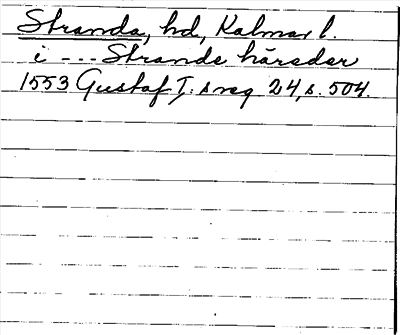 Stranda, hd, Kalmar l.
i --- Strande häreder
1553 Gustaf I:s reg 24, s. 504.